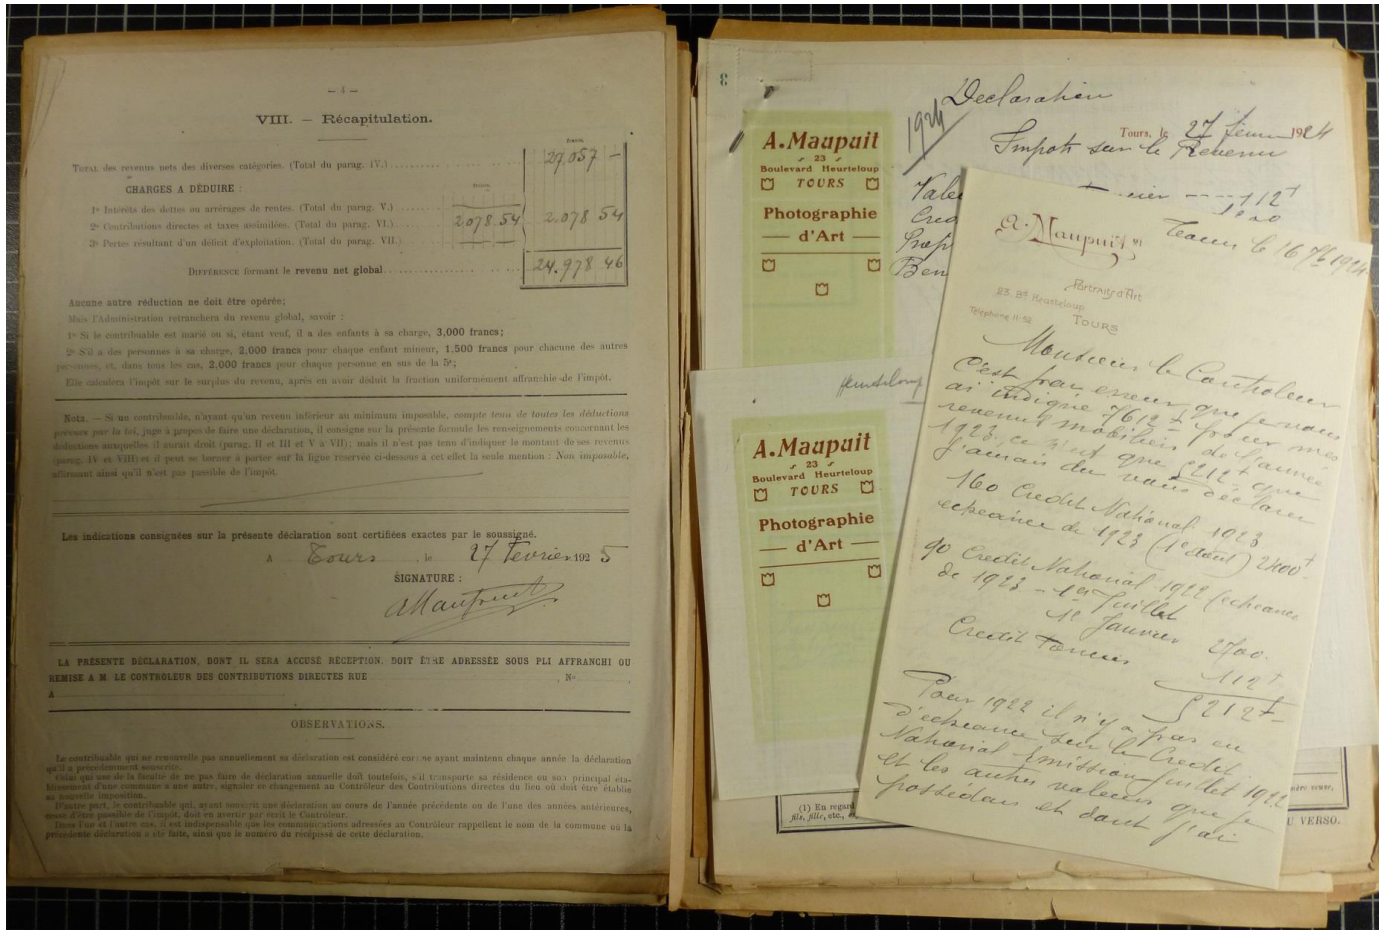 — 4 —
VIII. — Récapitulation.
Total des revenus nets des diverses catégories. (Total du parag. IV.)
27,057 —
CHARGES A DÉDUIRE :
1° Intérêts des dettes ou arrérages de rentes. (Total du parag. V.)
2° Contributions directes et taxes assimilées. (Total du parag. VI.) 2,078.54 2,078 54
3° Pertes résultant d'un déficit d'exploitation. (Total du parag. VII.)
Différence formant le revenu net global 24.978 46
Aucune autre réduction ne doit être opérée;
Mais l'Administration retranchera du revenu global, savoir :
1° Si le contribuable est marié ou si, étant veuf, il a des enfants à sa charge, 3,000 francs;
2° S'il a des personnes à sa charge, 2,000 francs pour chaque enfant mineur, 1,500 francs pour chacune des autres
personnes, et, dans tous les cas, 2,000 francs pour chaque personne en sus de la 5e;
Elle calculera l'impôt sur le surplus du revenu, après en avoir déduit la fraction uniformément affranchie de l'impôt.
Nota. — Si un contribuable, n'ayant qu'un revenu inférieur au minimum imposable, compte tenu de toutes les déductions
prévues par la loi, juge à propos de faire une déclaration, il consigne sur la présente formule les renseignements concernant les
déductions auxquelles il aurait droit (parag. II et III et V à VII); mais il n'est pas tenu d'indiquer le montant de ses revenus
(parag. IV et VIII) et il peut se borner à porter sur la ligne réservée ci-dessous à cet effet la seule mention : Non imposable,
affirmant ainsi qu'il n'est pas passible de l'impôt.
Les indications consignées sur la présente déclaration sont certifiées exactes par le soussigné.
A Tours le 27 Fevrier 1925
SIGNATURE :
AMaupuit
LA PRÉSENTE DÉCLARATION, DONT IL SERA ACCUSÉ RÉCEPTION, DOIT ÊTRE ADRESSÉE SOUS PLI AFFRANCHI OU
REMISE A M. LE CONTROLEUR DES CONTRIBUTIONS DIRECTES RUE N°
A
OBSERVATIONS.
Le contribuable qui ne renouvelle pas annuellement sa déclaration est considéré comme ayant maintenu chaque année la déclaration
qu'il a précédemment souscrite.
Celui qui use de la faculté de ne pas faire de déclaration annuelle doit toutefois, s'il transporte sa résidence ou son principal éta-
blissement d'une commune à une autre, signaler ce changement au Contrôleur des Contributions directes du lieu où doit être établie
sa nouvelle imposition.
D'autre part, le contribuable qui, ayant souscrit une déclaration au cours de l'année précédente ou de l'une des années antérieures,
cesse d'être passible de l'impôt, doit en avertir par écrit le Contrôleur.
Dans l'un et l'autre cas, il est indispensable que les communications adressées au Contrôleur rappellent le nom de la commune où la
précédente déclaration a été faite, ainsi que le numéro du récépissé de cette déclaration.
8
Declaration
1924
Tours, le 27 fevrier 1924
Impots sur le Revenu
112 f
A. Maupuit
23
Boulevard Heurteloup
TOURS
Photographie
— d'Art —
Heurteloup
A. Maupuit
23
Boulevard Heurteloup
TOURS
Photographie
— d'Art —
A. Maupuit
Portraits d'Art
23. Bd Heurteloup
Téléphone 11-52
TOURS
Tours le 16 7b 1924
Monsieur le Controleur
C'est par erreur que je vous
ai indiqué 7612 f pour mes
revenus mobiliers de l'année
1923. ce n'est que 5212 f que
j'aurais du vous déclarer
160 Credit National 1923
echeance de 1923 (1e Aout) 2400 f
90 Credit National 1922 (echeance
de 1923 — 1er Juillet
1e Janvier 2700.
Credit Foncier 112 f
5212 f
Pour 1922 il n'y a pas eu
d'echeance sur le Credit
National Emission Juillet 1922
et les autres valeurs que je
possedais et dont j'ai
(1) En regard
fils, fille, etc.,
U VERSO.